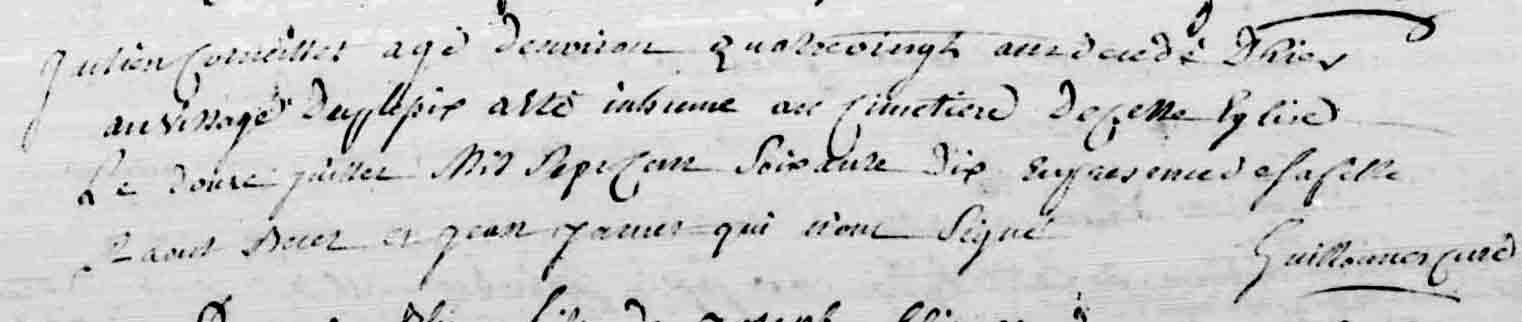 Julien Corneillet agé denviron quatrevingt ans decedé D'hier
au village Duplepix a été inhumé au cimetiere De cette Eglise
Le douze juillet Mil Sept Cent Soixante Dix en presence de sa fille
et jean qui n'ont Signé
Guillaumes curé